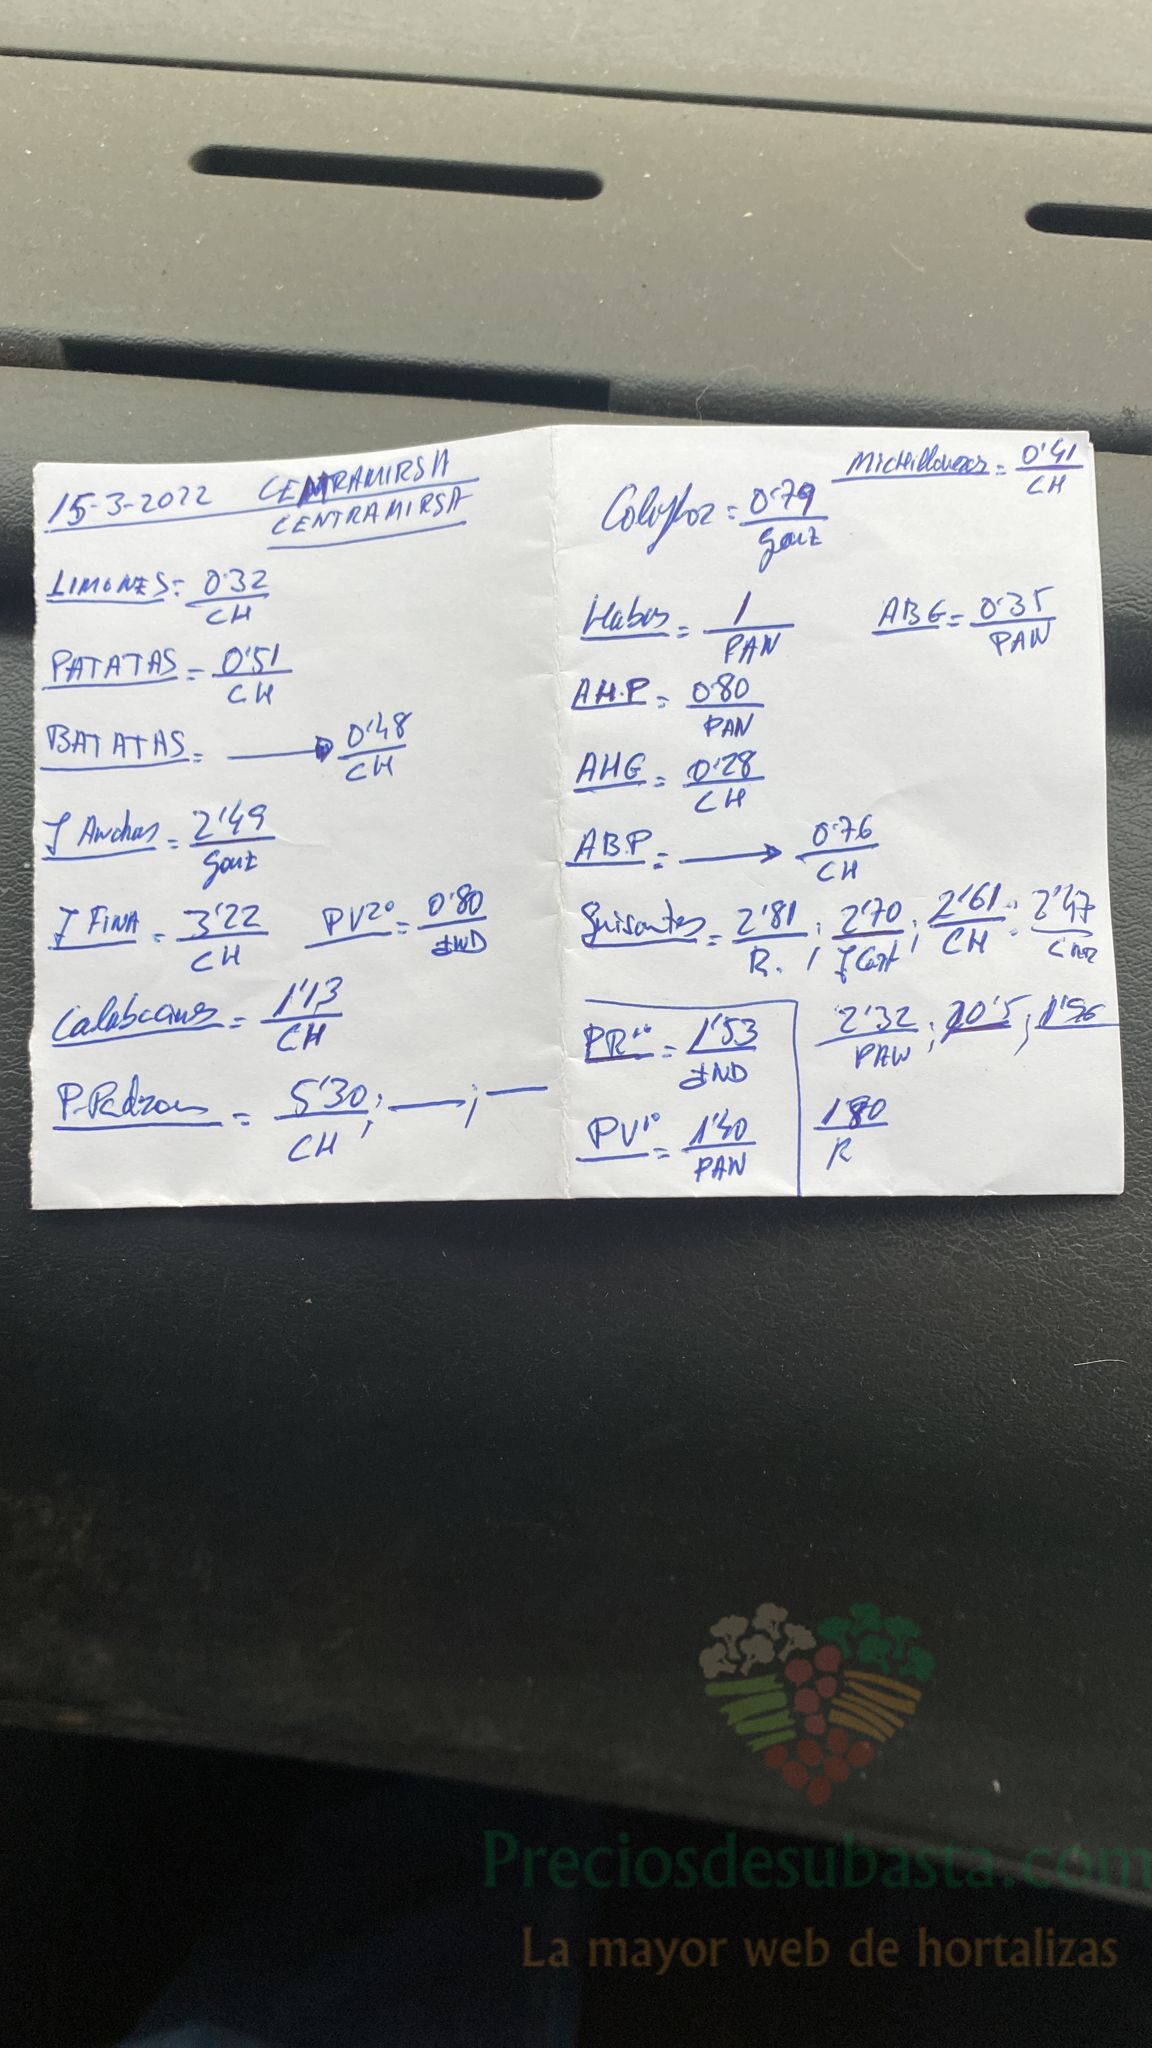 15-3-2022 CENTRAMIRSA
CENTRAMIRSA
LIMONES = 0'32
CH
PATATAS = 0'51
CH
BATATAS = → 0'48
CH
J Anchas = 2'49
Gonz
J FINA = 3'22 PV2º = 0'80
CH IND
Calabacines = 1'13
CH
P. Padron = 5'30 ; — ; —
CH
Michirones = 0'41
CH
Coliflor = 0'79
Gonz
Habas = 1 ABG = 0'35
PAN PAN
AH.P = 0'80
PAN
AHG = 0'28
CH
AB.P = → 0'76
CH
Guisantes = 2'81 ; 2'70 ; 2'61 ; 2'47
R. CH
2'32 ; 20'5 ; 1'96
PAN
180
R
PR1º = 1'53
IND
PV1º = 1'40
PAN
Preciosdesubasta.com
La mayor web de hortalizas